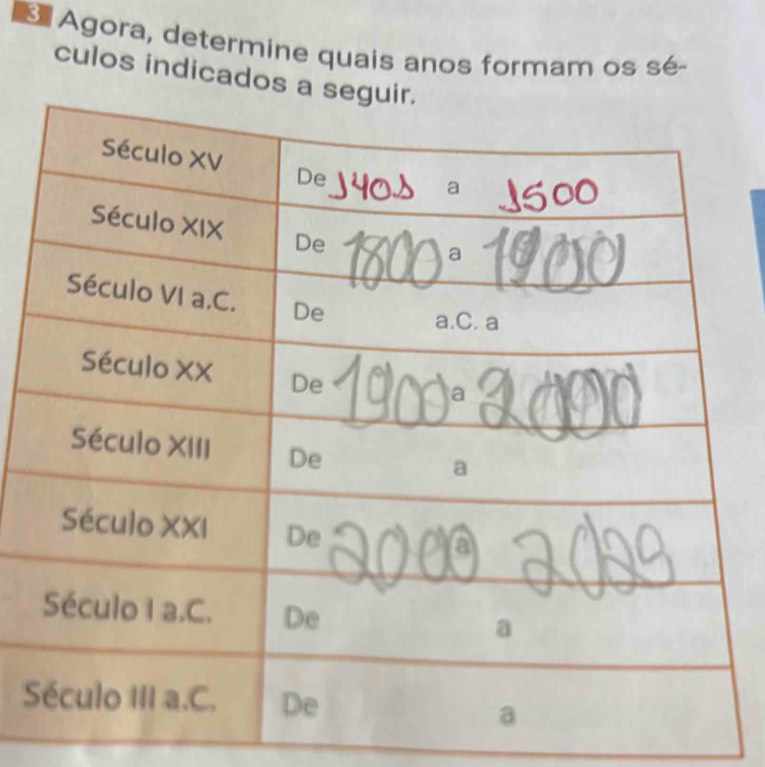 3 Agora, determine quais anos formam os sé-
culos indicados a seguir.
Século XV De 1401 a 1500
Século XIX De 1800 a 1900
Século VI a.C. De a.C. a
Século XX De 1900 a 2000
Século XIII De a
Século XXI De 2000 a 2025
Século I a.C. De a
Século III a.C. De a